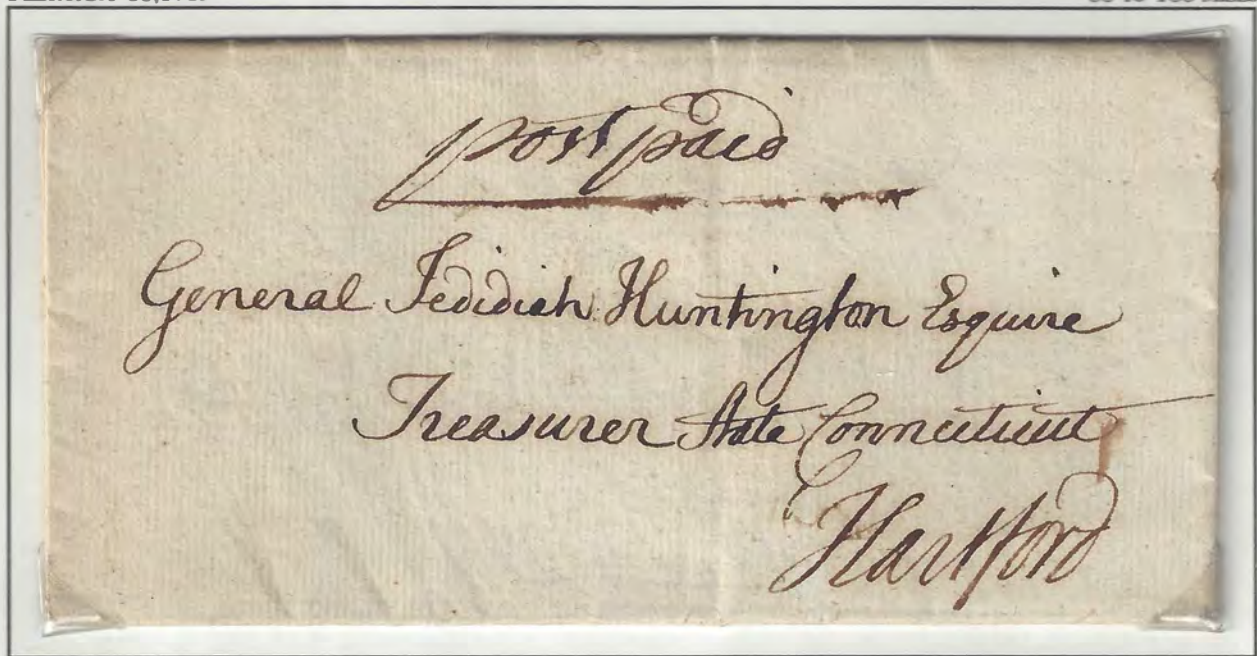 post paid
General Jedidiah Huntington Esquire
Treasurer State Connecticut
Hartford